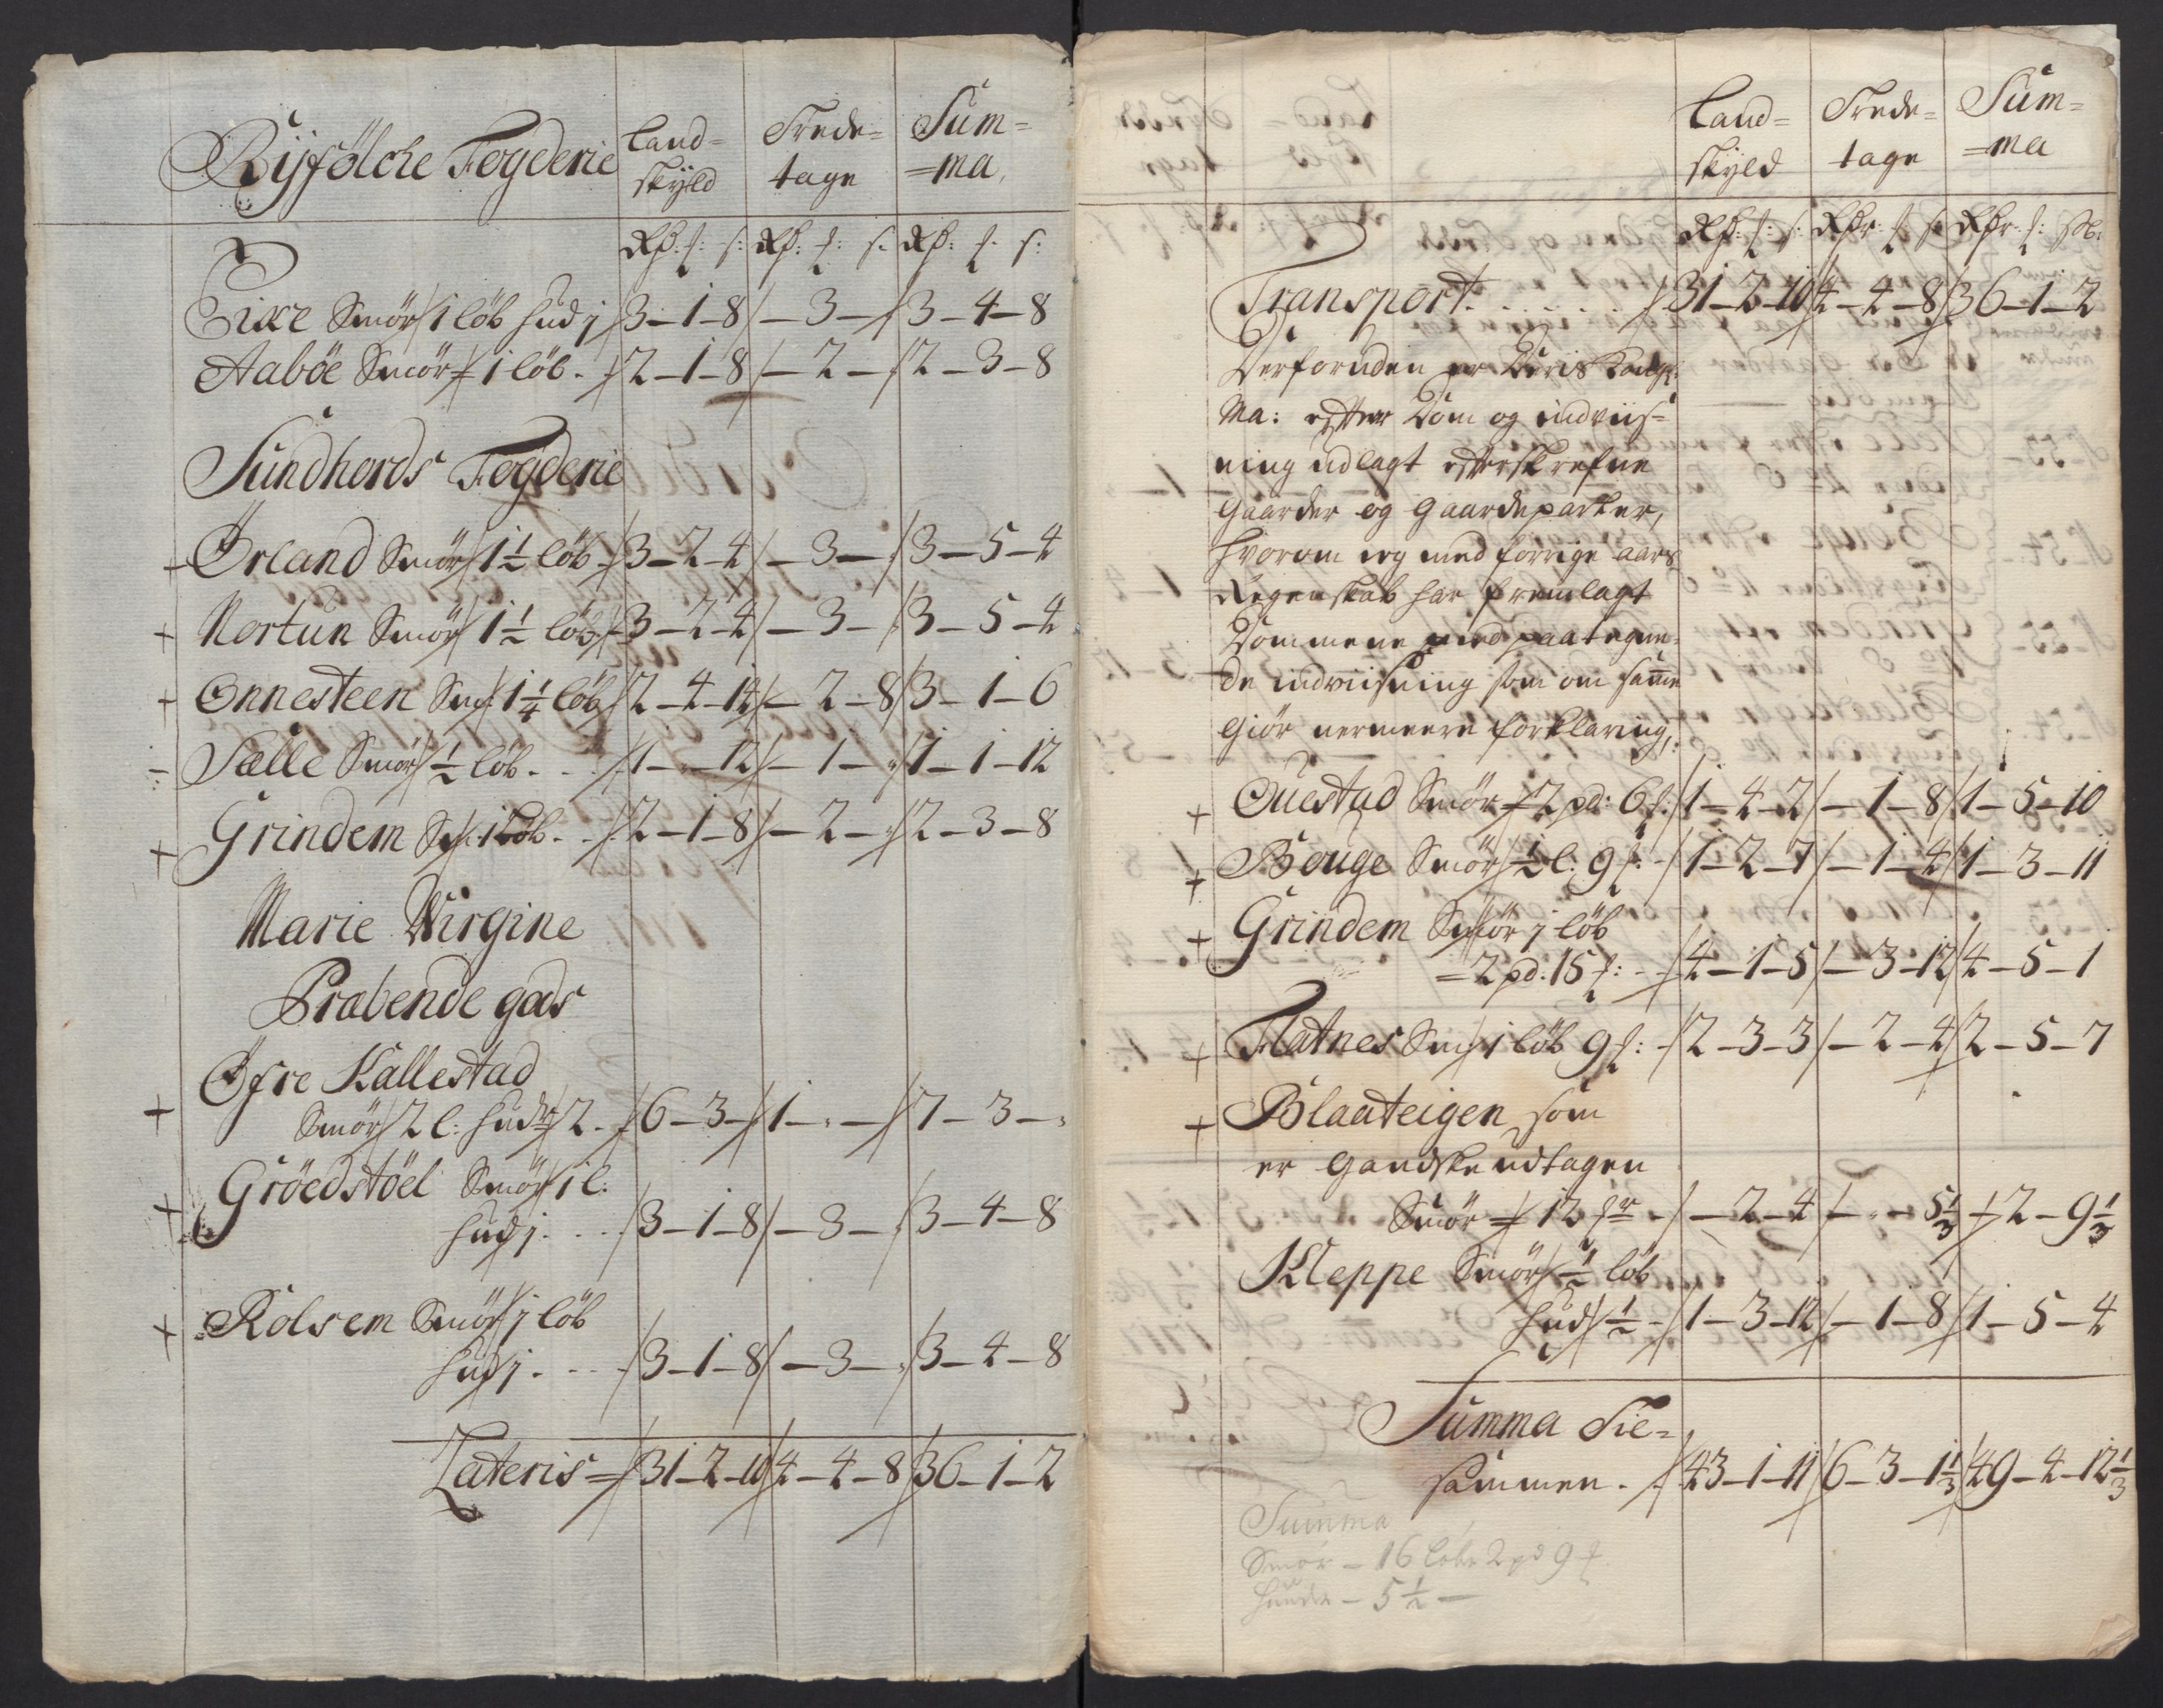 Ryfölche Fogderie
Land= Trede= Sum=
skyld tage =ma
Rdr: f: s: Rdr: f: s. Rdr: f. s:
Eixe Smör 1 löb hud j 3-1-8 -3- 3-4-8
Aaböe Smör 1 löb. 2-1-8 -2- 2-3-8
Sundhords Fogderie
+ Örland Smör 1½ löb 3-2-4 -3- 3-5-4
+ Nortun Smör 1½ löb 3-2-4 -3- 3-5-4
+ Onnesteen Smör 1¼ löb 2-4-14 -2-8 3-1-6
- Sælle Smör ½ löb. 1- -12 -1- 1-1-12
+ Grindem Sm. 1 löb. 2-1-8 -2- 2-3-8
Marie Virgine
Præbende gods
+ Öfre Kallestad
Smör 2 l: huder 2. 6-3- 1- - 7-3-
+ Gröedstöel Smör 1 l:
hud j. 3-1-8 -3- 3-4-8
+ Rolsem Smör j löb
hud j. 3-1-8 -3- 3-4-8
Lateris 31-2-10 4-4-8 36-1-2
Land= Trede= Sum=
skyld tage =ma
Rdr: f: s: Rdr: f s. Rdr: f: s:
Transport. 31-2-10 4-4-8 36-1-2
Derforuden er Deris Kongl:
Ma: efter Dom og indviis=
ning udlagt efterskrefne
gaarder og gaardeparter,
hvorom jeg med forrige aars
Regenskab har fremlagt
Dommene med paategnen=
de indviisning som om samme
giör nermeere forklaring,:
+ Ouestad Smör 2 pd: 6 f: 1-4-2 -1-8 1-5-10
+ Bouge Smör ½ l: 9 f: 1-2-7 -1-4 1-3-11
+ Grindem Smör j löb
=2 pd: 15 f: 4-1-5 -3-12 4-5-1
+ Flatnes Sm. 1 löb 9 f: 2-3-3 -2-4 2-5-7
+ Blaateigen som
er gandske udtagen
Smör 12 fr -2-4 - -5⅓ -2-9⅓
Kleppe Smör ½ löb
hud ½ 1-3-12 -1-8 1-5-4
Summa Tie=
sammen. 43-1-11 6-3-1⅓ 49-4-12⅓
Summa
Smör - 16 løbe 2 pd 9 f
huude - 5½ -